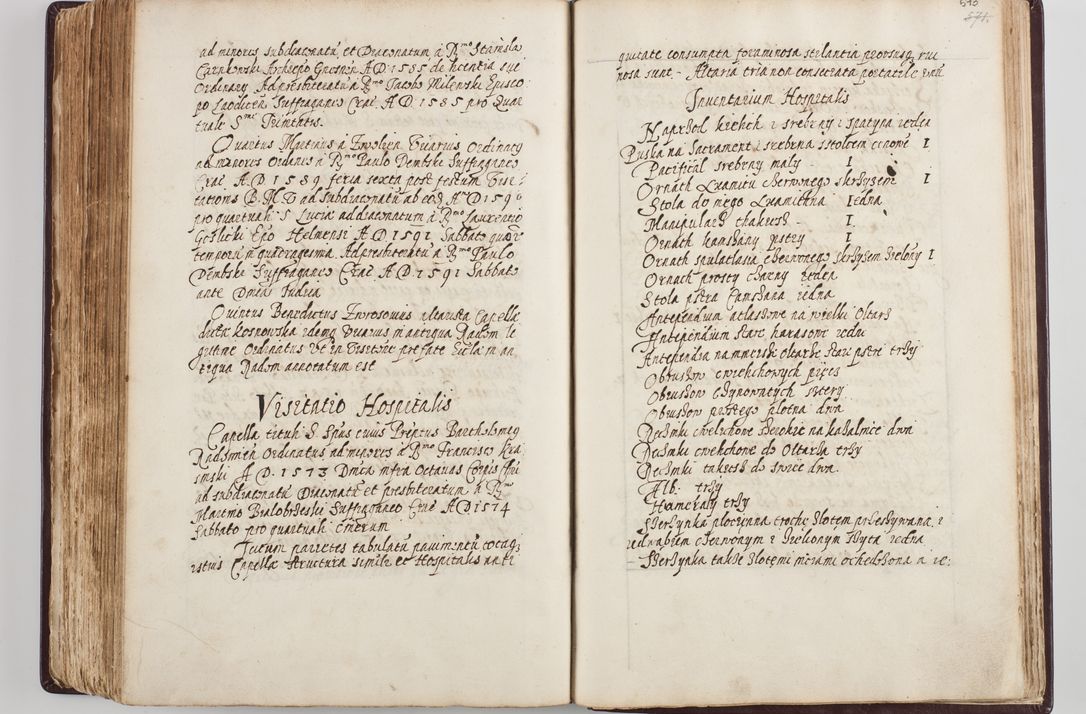 ad minores subdiaconatū et Diaconatum à Rmo Stanisla
Carnkowski Archiepo Gnesnēn A D 1585 de licentia sui
Ordinary Ad presbiteratū à Rmo Jacobo Milenski Episco
po Laodicēn Suffraganeo Crac A. D. 1585 pro Quar
tuale Smæ Trinitatis.
Quartus Martinus à Zwolien Vicarius Ordinacy
ad minores Ordines à Rmo Paulo Dembski Suffraganeo
Crac A. D 1589 feria sexta post festum Visi
tationis B. M. V ad subdiaconatū ab eod Ao D 1590
pro quartuali S Lucia ad diaconatum à Rmo Laurentio
Goslicki Epo Helmensi A D 1591 Sabbato quar
temporū in quadragesima Ad presbiteratū à Rmo Paulo
Dembski Suffraganeo Crac A D 1591 Sabbato
ante Dmcā Iudica
Quintus Benedictus
dictæ Kosnowska idemq Vicarius in antiqua Radom le
gitime Ordinatus Vt in Visitone prefatæ Eccla in an
tiqua Radom annotatum est
Visitatio Hospitalis
Capella tituli S. Spūs cuius Preptus Bartholomeg
Radomien Ordinatus ad minores à Rmo Francisco Kra
sinski A D. 1573 Dmca infra Octauas Corpis Chri
ad subdiaconatū Diaconatū et presbiteratum à Rmo
Martino Bialobrzeski Suffraganeo Crac A D 1574
Sabbato pro quartuali Cinerum
Tectum parietes tabulatū pauimentū totaq
istius Capellæ structura simile et Hospitalis anti
570
571.
quitate consumpta foraminosa stilantia prorsusq rui
nosa sunt - Altaria tria non consecrata portatile
Inuentarium Hospitalis
Naprzod kielich i srebrny i spatyna iedna
Puszka na Sacrament i srebrna i stolcem cenone I
Pacifical srebrny maly - I
Ornach Axamitu cherwonego skrzysem I
Stola do niego Axamitna Iedna
Manipularz thakusz - I.
Ornach hamszany pstry I
Ornach spulatlasa cherwonego skrzysem zielony I
Ornach prosty charny ieden
Stola pstra Camszana iedna
Antependium atlasowe na wielki Oltarz
Antependium stare harasowe iedn
Antependia na mnieiszi oltarze stare pstre trzy
Obrusow cwelichowych pięcz
Obrusow czynowatych sztery
Obrusow prostego plotna dwa
Reczniki cwelichowe szerokie na kazalnice dwa
Reczniki cwelichowe do Oltarza trzy
Reczniki takusz do swiec dwa.
Alb. trzy
Humeraly trzy
Szerzynka plocienna trochę zlotem przeszywana, i
iedwabiem cherwonym i zielionym szyta iedna
Szerzynka takze zlotemi niciami ochedozona a ie: